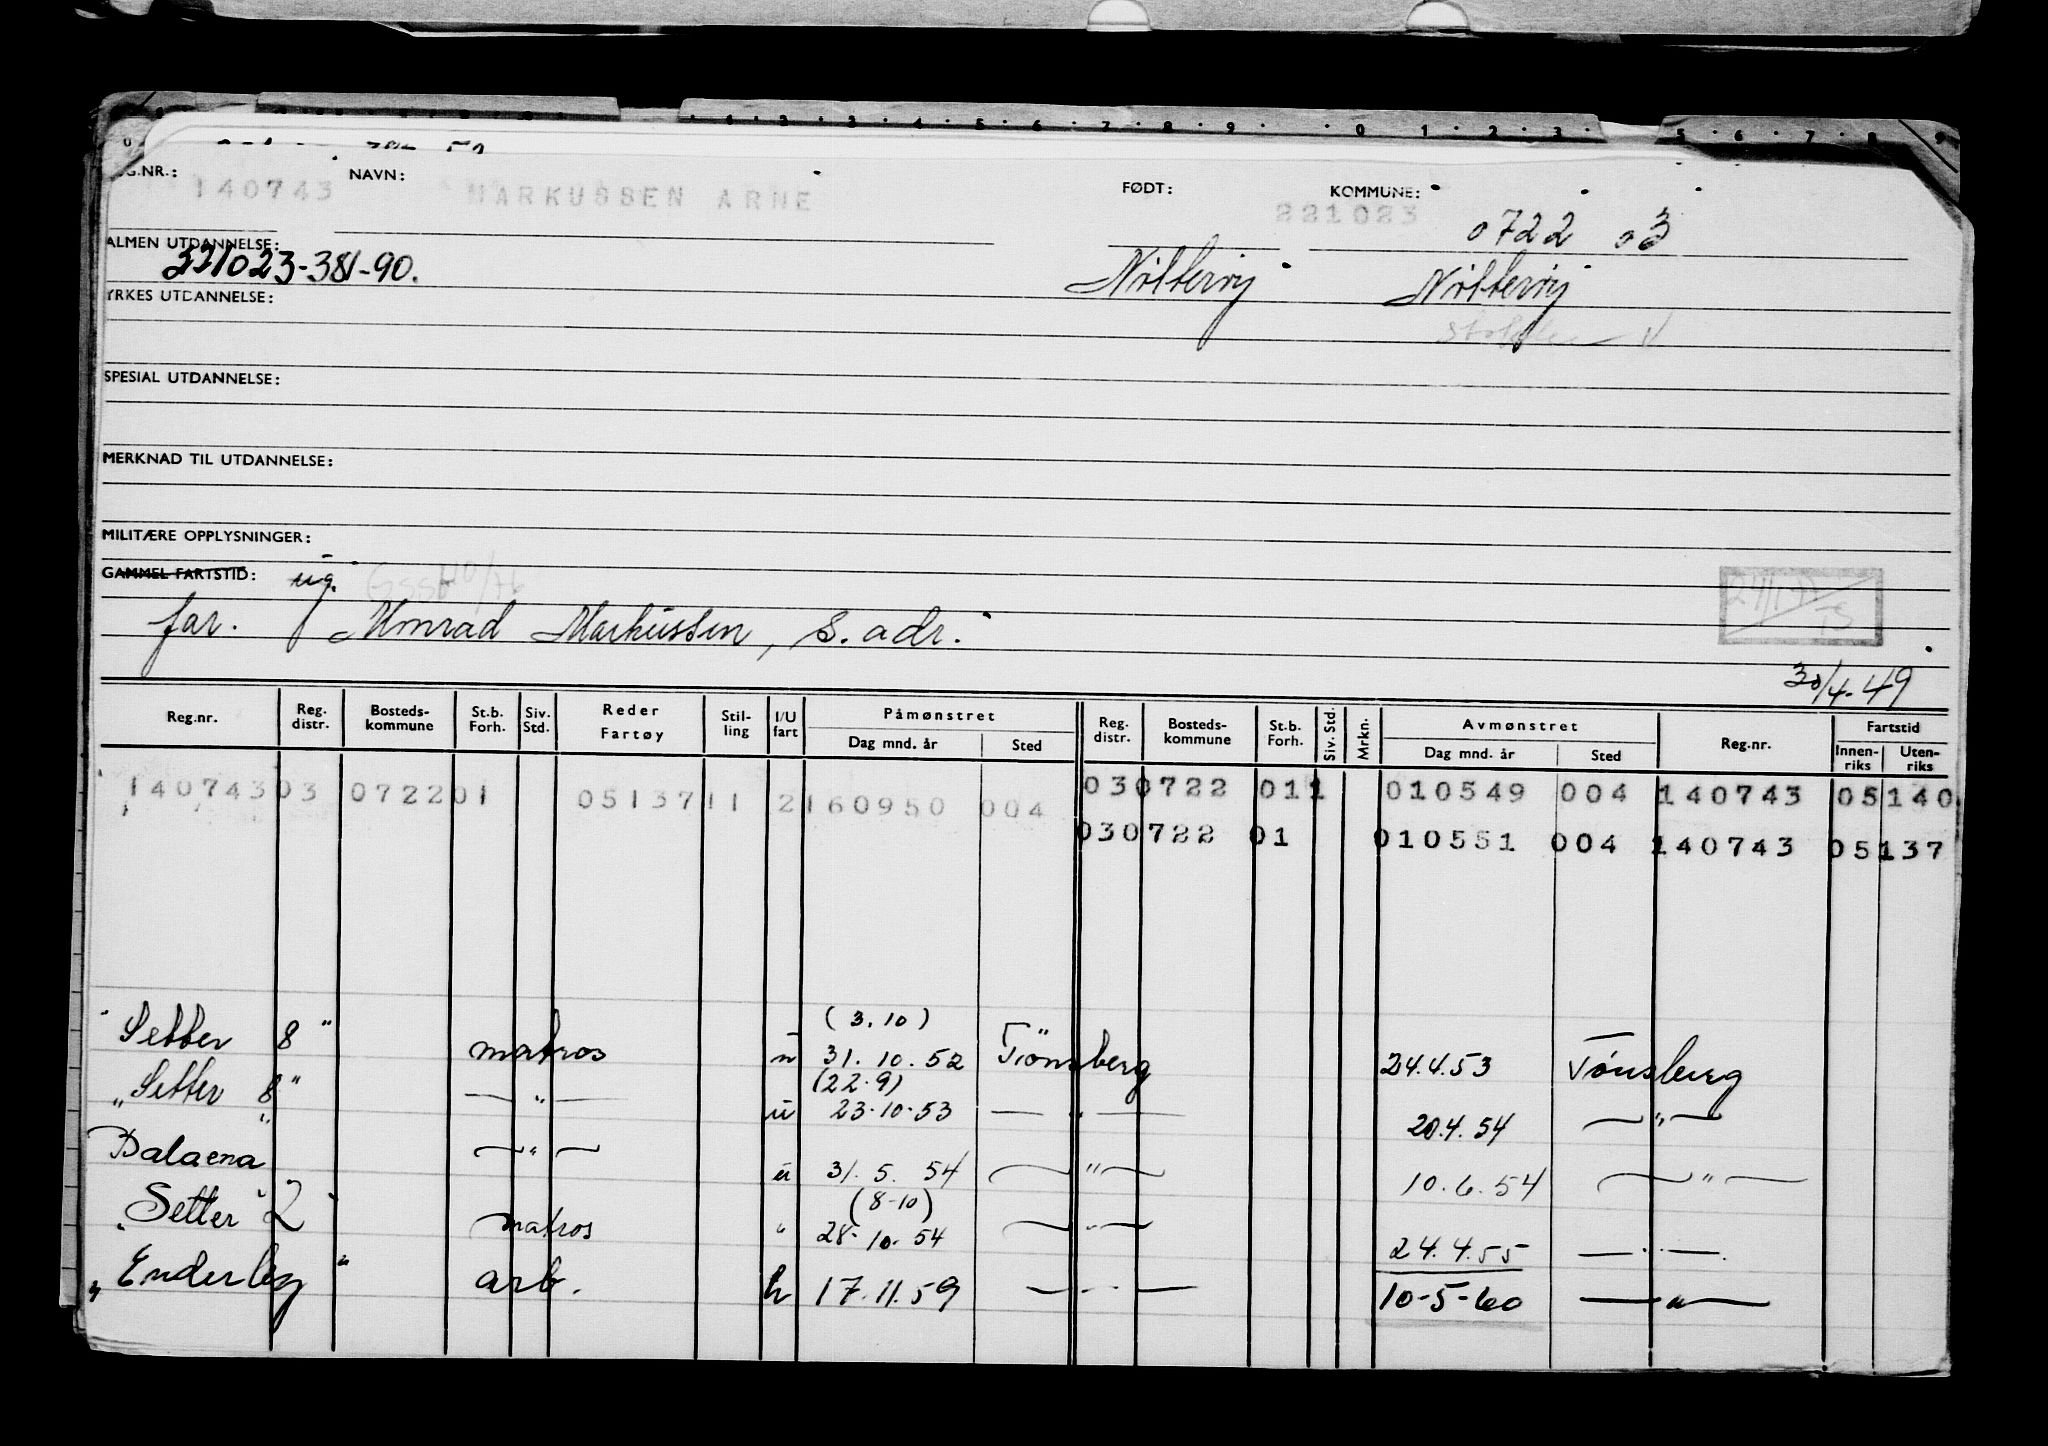 REG.NR.: NAVN: FØDT: KOMMUNE:
140743 MARKUSSEN ARNE 221023 0722 03
ALMEN UTDANNELSE:
221023-381-90. Nötterøy Nötterøy
YRKES UTDANNELSE:
SPESIAL UTDANNELSE:
MERKNAD TIL UTDANNELSE:
MILITÆRE OPPLYSNINGER:
GAMMEL FARTSTID: ug.
far. Konrad Markussen, s. adr.
30/4-49
Reg.nr. Reg. distr. Bosteds-kommune St.b. Forh. Siv. Std. Reder Fartøy Stil-ling I/U fart Påmønstret Dag mnd. år Sted Reg. distr. Bosteds-kommune St.b. Forh. Siv. Std. Mrkn. Avmønstret Dag mnd. år Sted Reg.nr. Fartstid Innen-riks Uten-riks
140743 03 0722 01 051371 1 2 160950 004 03 0722 01 1 010549 004 140743 05140
03 0722 01 010551 004 140743 05137
(3.10)
"Setter 8" matros u 31.10.52 Tönsberg 24.4.53 Tönsberg
(22.9)
"Setter 8" — " — u 23-10-53 — " — 20.4.54 — " —
Balaena — " — u 31.5.54 — " — 10.6.54 — " —
(8-10)
"Setter 2" matros " 28-10-54 — " — 24.4.55 — " —
"Enderby" arb. h 17.11.59 — " — 10-5-60 — " —